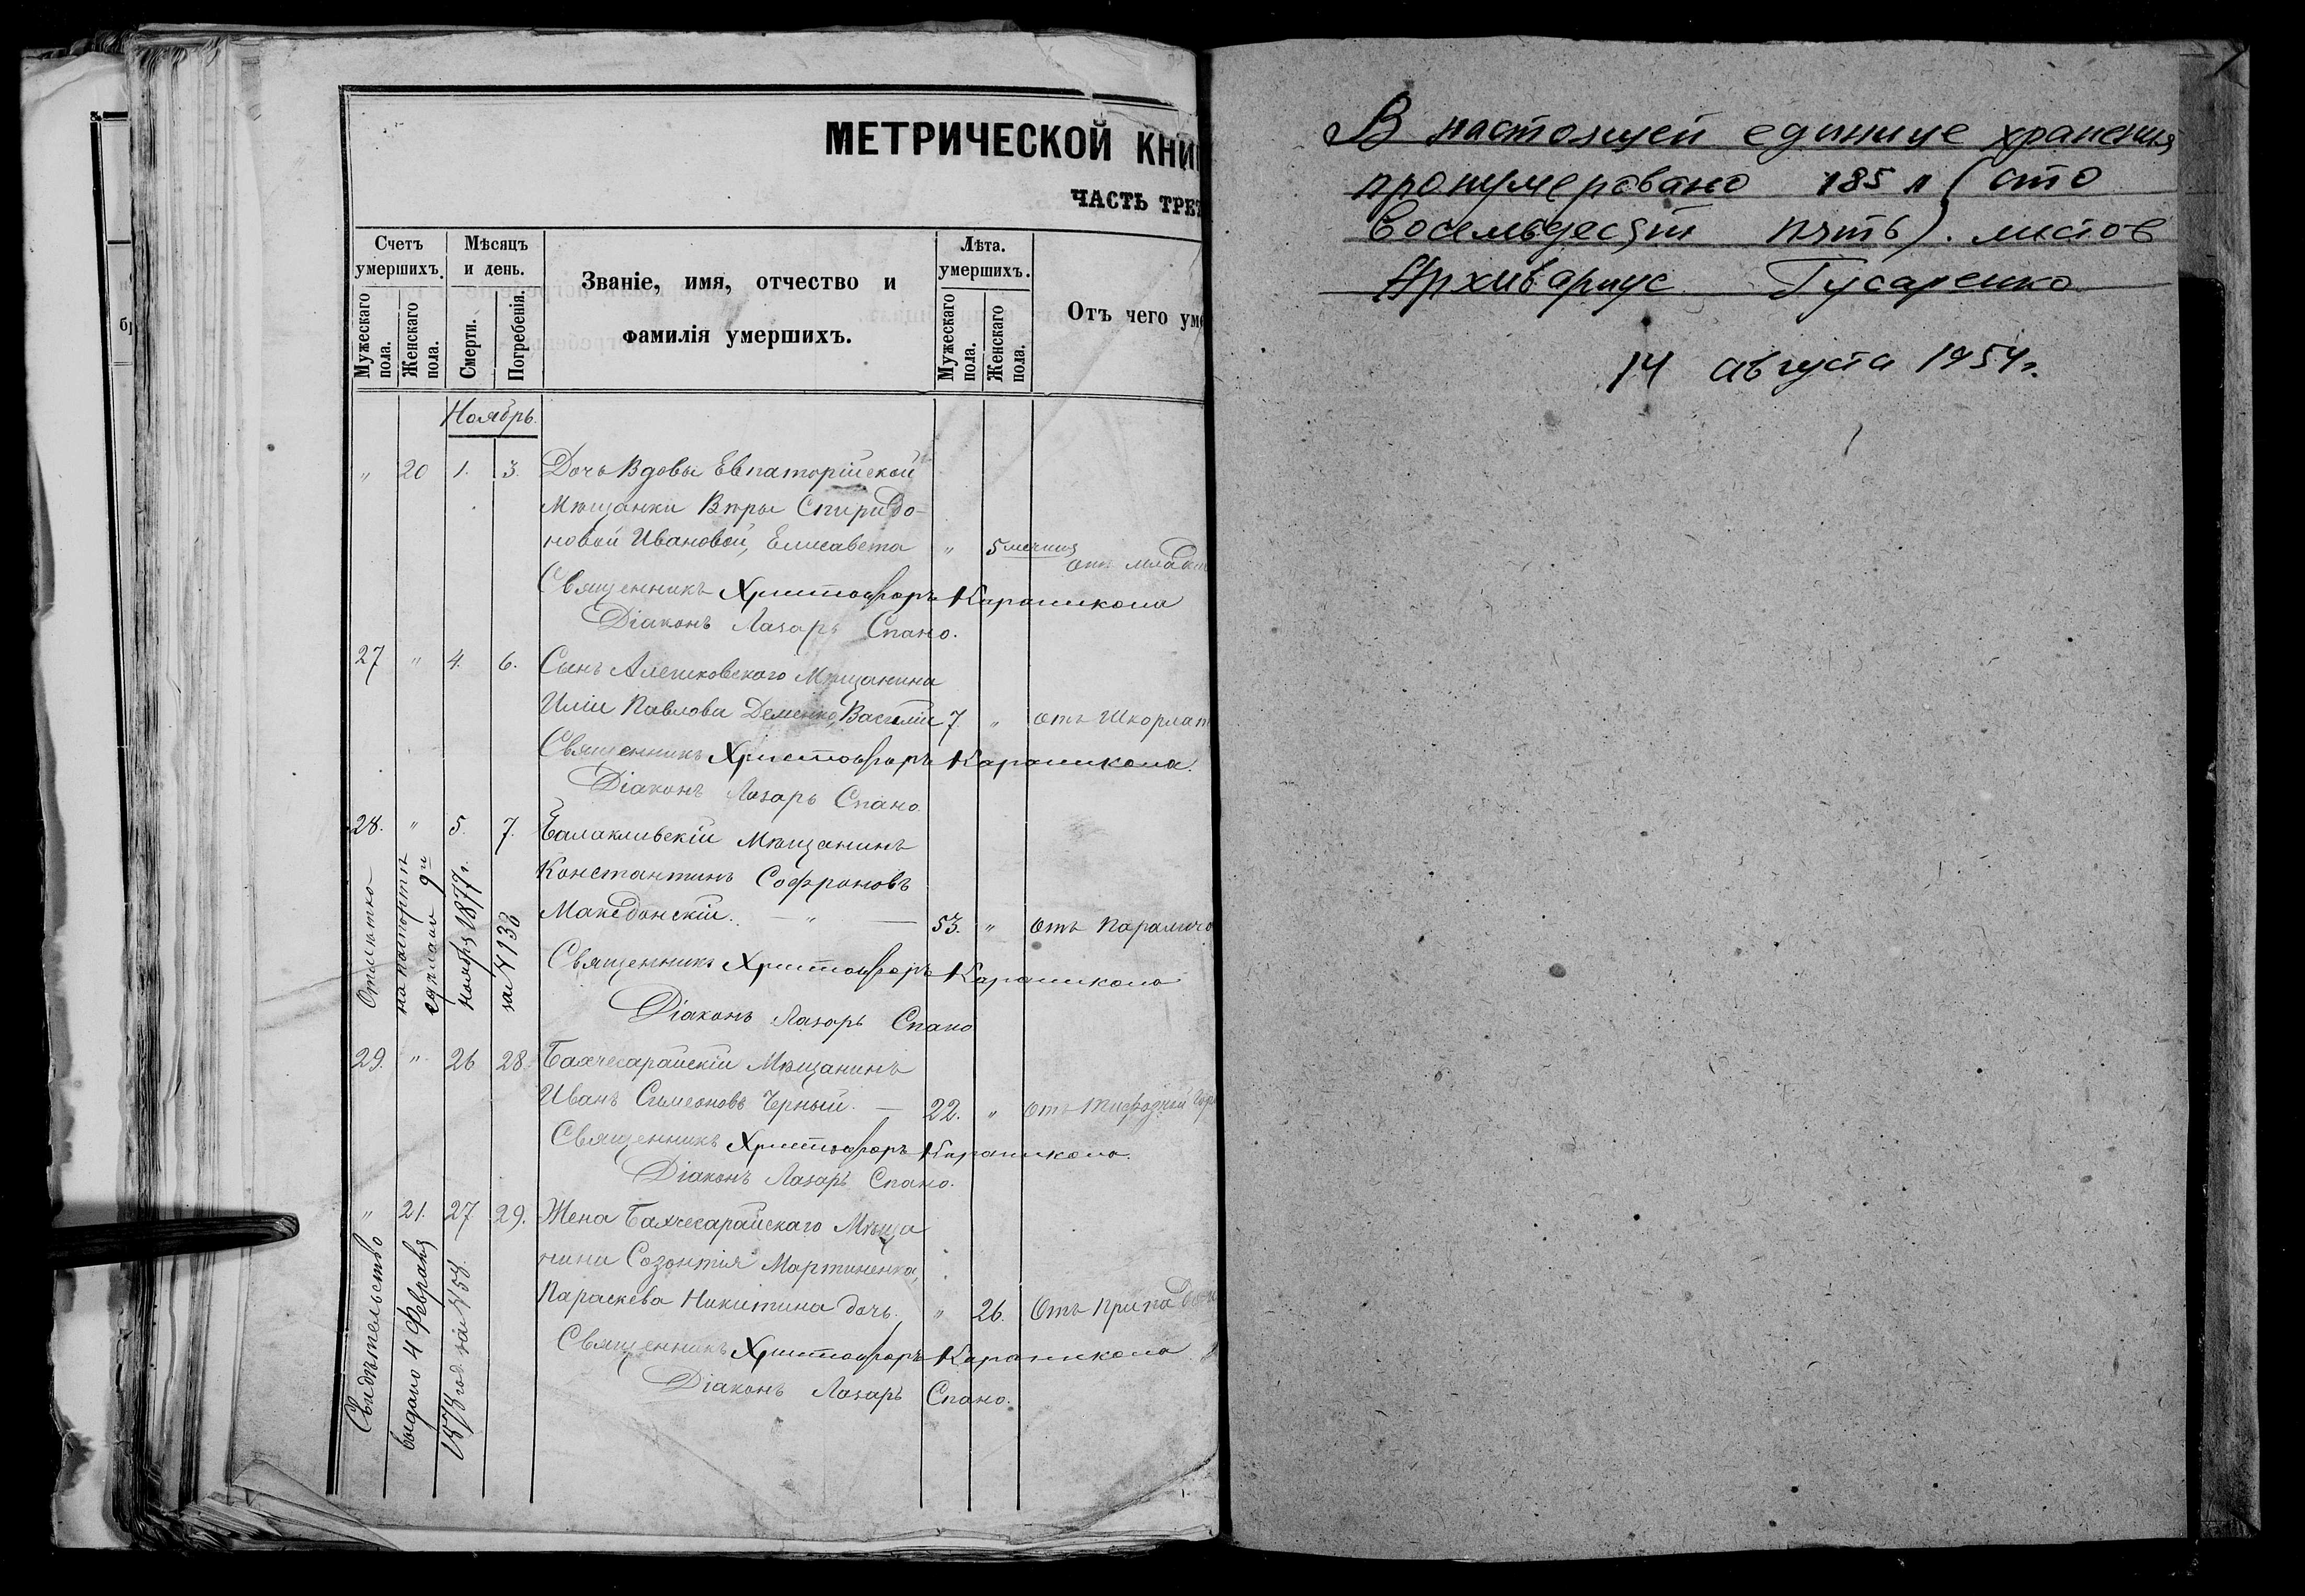 МЕТРИЧЕСКОЙ КНИ
ЧАСТЬ ТРЕТ
Счетъ умершихъ.
Мужескаго пола.
Женскаго пола.
Мѣсяцъ и день.
Смерти.
Погребенія.
Званіе, имя, отчество и
фамилія умершихъ.
Лѣта. умершихъ.
Мужескаго пола.
Женскаго пола.
Отъ чего уме
Ноябрь.
" 20 1. 3. Дочь Вдовы Евпаторійской
Мѣщанки Вѣры Спиридо-
новой Ивановой, Елисавета " 5 мѣсяця
отъ младен
Священникъ Христофоръ
Діаконъ Лазарь Спано.
27 " 4. 6. Сынъ Алешковского Мѣщанина
Иліи Павлова Деменко, Василій 7. " отъ Шкорлат
Священникъ Христофоръ
Діаконъ Лазарь Спано.
28. " 5. 7. Балаклавскій Мѣщанинъ
Константинъ Софроновъ
Македонскій. — " — 53. " отъ Паралича
Отмѣтка
на паспортѣ
сдѣлана 9го
ноября 1877 г.
за № 133
Священникъ Христофоръ
Діаконъ Лазарь Спано
29. " 26 28. Бахчесарайскій Мѣщанинъ
Иванъ Симеоновъ Черный. — 22. " отъ Тифозной Горя
Священникъ Христофоръ
Діаконъ Лазарь Спано.
" 21. 27. 29. Жена Бахчесарайскаго Мѣща
нина Созонтія Мартиненка,
Параскева Никитина дочь. " 26. Отъ припадк
Свидѣтельство
выдано 4 Февраля
1878 год. за № 58.
Священникъ Христофоръ
Діаконъ Лазарь Спано.
В настоящей единице хранения
пронумеровано 185 л (сто
восемьдесят пять). листов
Архивариус Гусаренко
14 августа 1954 г.